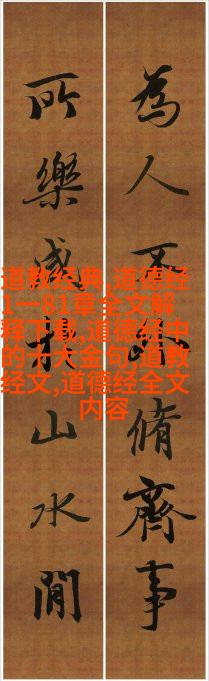 為人不脩齊事
所樂山水間
道教经典,道德经
1一81章全文解
释下载,道德经中
的十大金句,道教
经文,道德经全文
内容